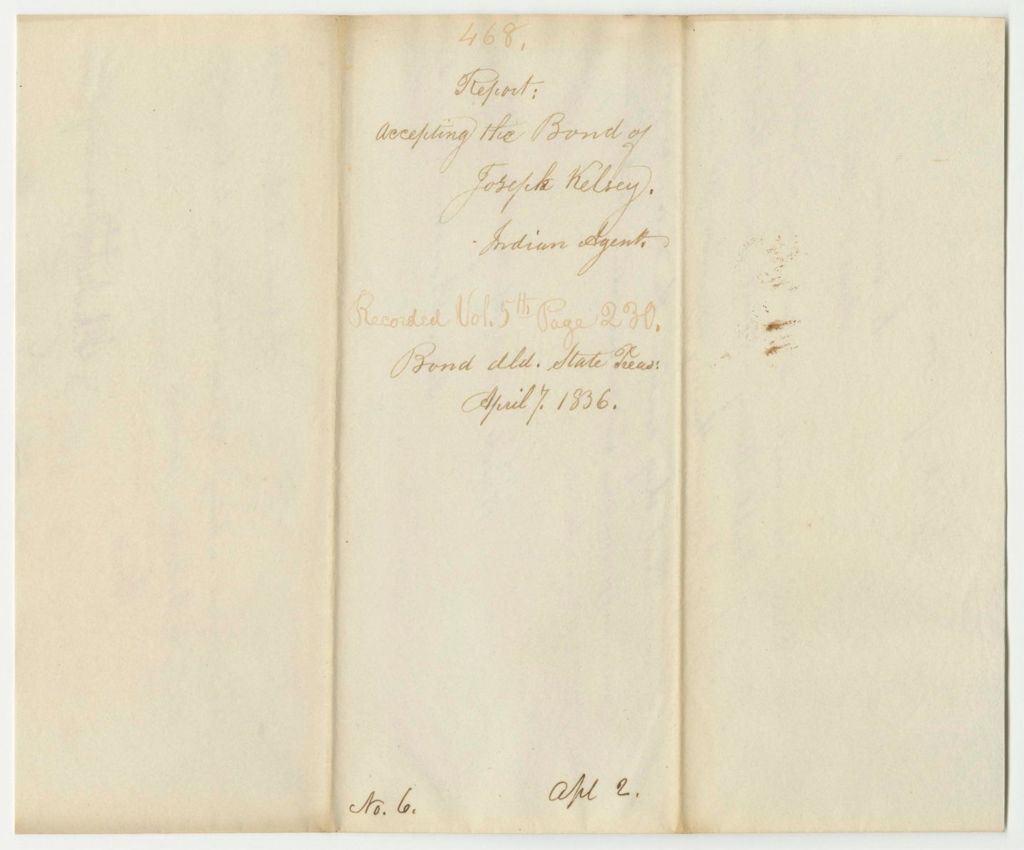 468.
Report:
Accepting the Bond of
Joseph Kelsey.
Indian Agent.
Recorded Vol. 5th Page 230.
Bond dld. State Treas:
April 7. 1836.
No. 6. Apl 2.